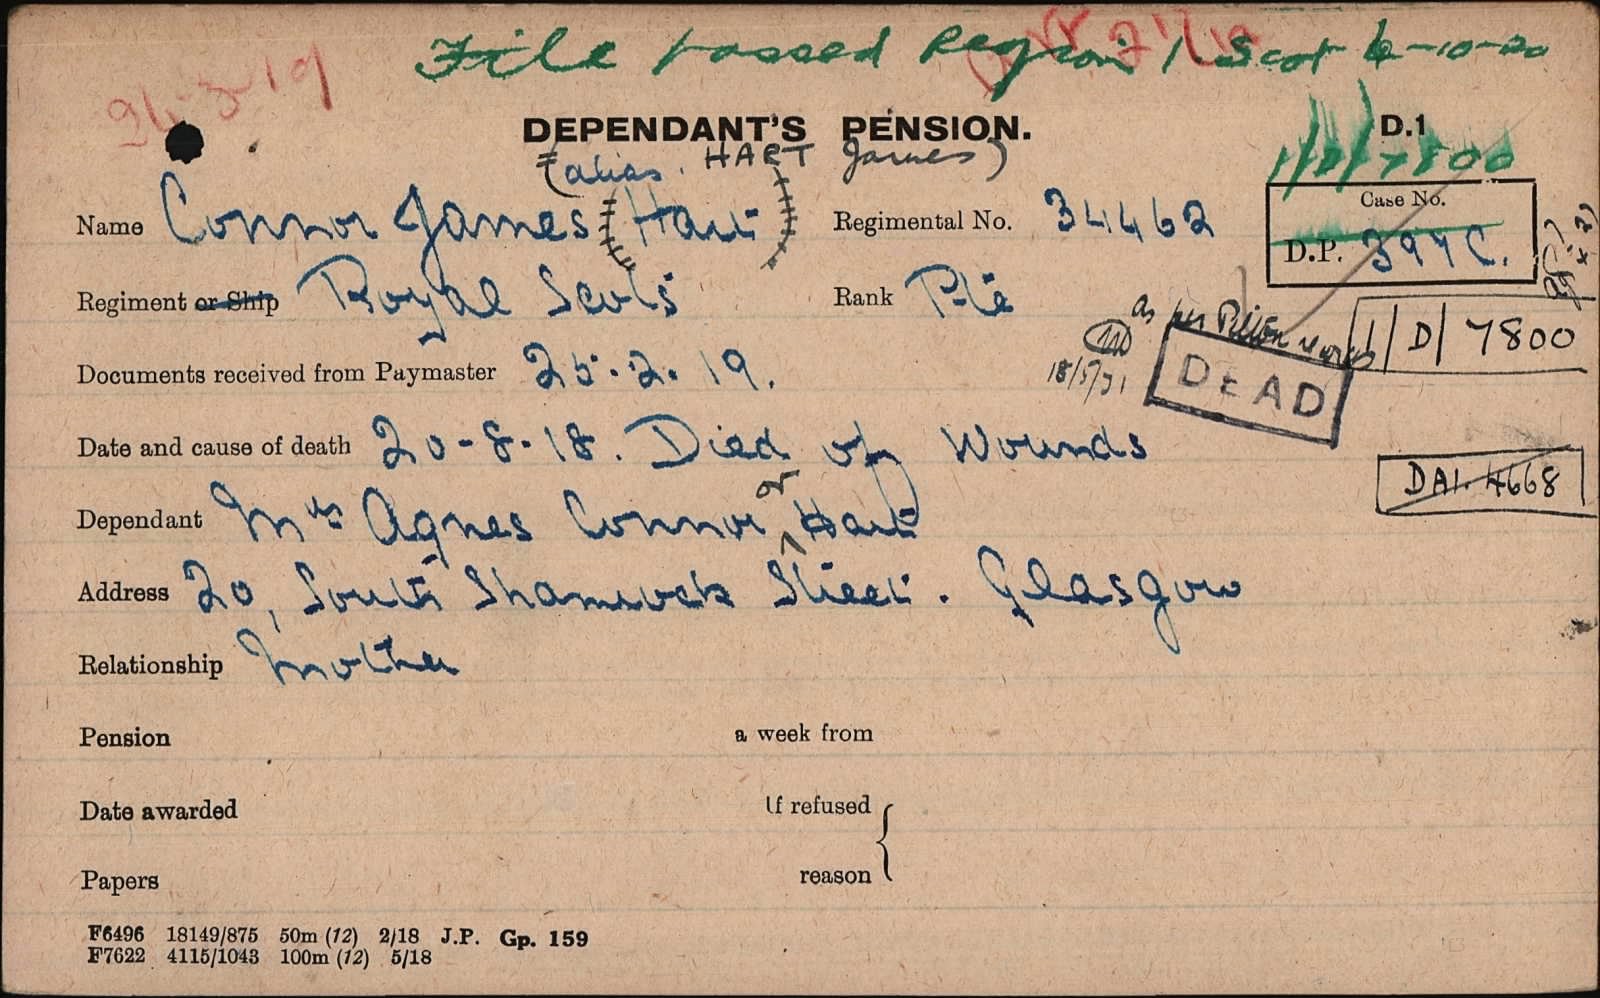 File passed Region 1 Scot 6-10-20
26-3-19
DEPENDANT'S PENSION. D.1
(alias. HART James) 1/D/7800
Name Connor James (Hart) Regimental No. 34462 Case No.
D.P. 394C.
Regiment or Ship Royal Scots Rank Pte
as per Pension 1/D/7800
Documents received from Paymaster 25.2.19. 18/5/31 DEAD
Date and cause of death 20-8-18. Died of Wounds
DA1.4668
Dependant Mrs Agnes Connor or Hart
Address 20, South Shamrock Street. Glasgow
Relationship Mother
Pension a week from
Date awarded If refused
Papers reason
F6496 18149/875 50m (12) 2/18 J.P. Gp. 159
F7622 4115/1043 100m (12) 5/18